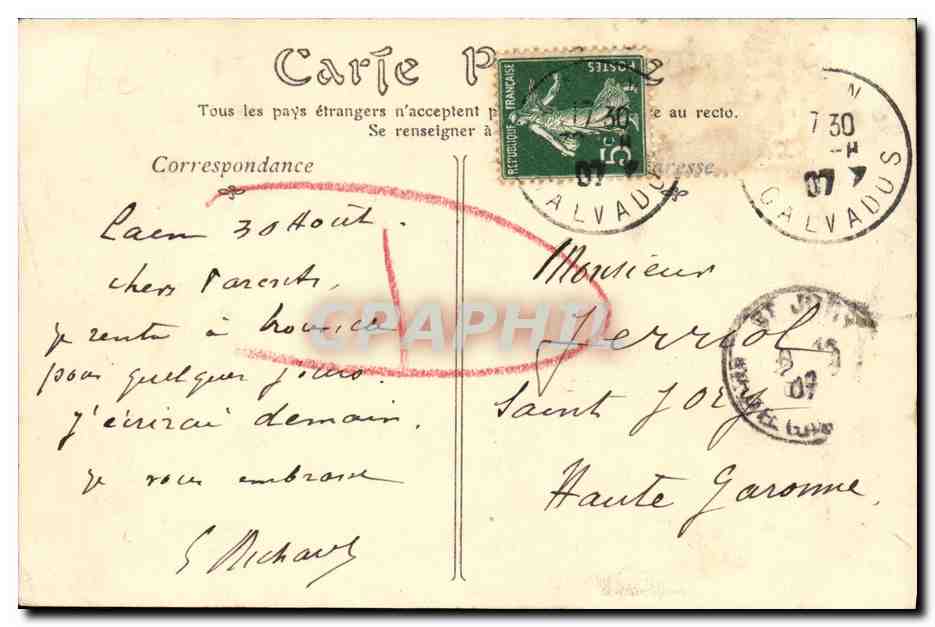 Carte P
Tous les pays étrangers n'acceptent p e au recto.
Se renseigner à
Correspondance
resse
RÉPUBLIQUE FRANÇAISE
POSTES
5c
17 30
07
ALVADOS
N
7 30
07
CALVADOS
Caen 30 Août.
chers Parents,
je rentre à
pour quelques jours.
J'écrirai demain.
je vous embrasse
Richard
Monsieur
Verriol
Saint Jory
Haute Garonne.
ST JORY
07
CPAPHIL